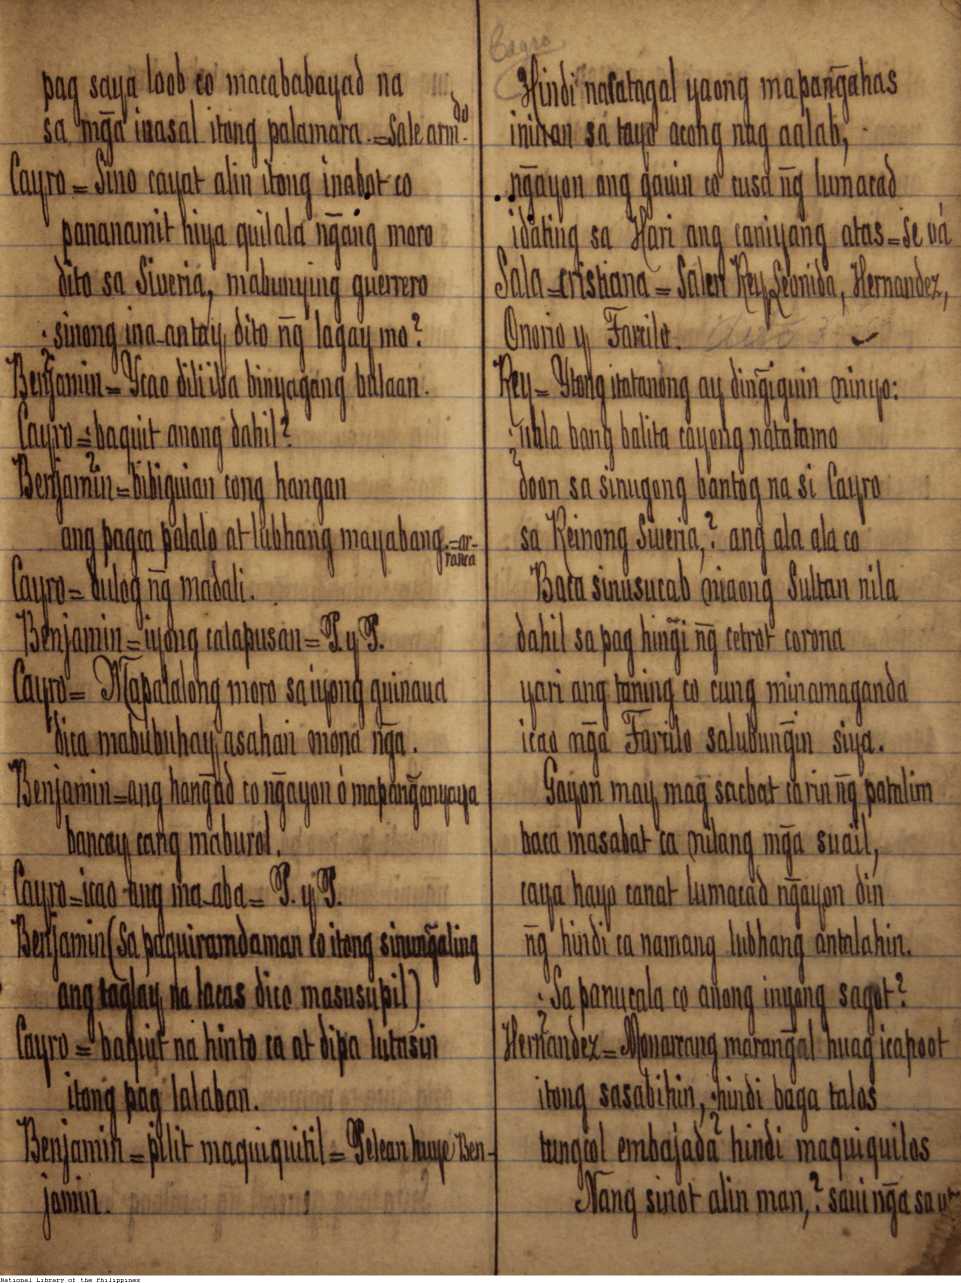 pag saya loob co macababayad na
sa mg̃a inasal itong palamara. = Sale arm.do
Cayro = Sino cayat alin itong inabot co
pananamit niya quilala ng̃ang moro
dito sa Siveria, mabunying guerrero
¿sinong ina-antay dito ng̃ lagay mo?
Benjamin = Ycao dili iba binyagang bulaan.
Cayro = ¿baquit anong dahil?
Benjamin = bibiguian cong hangan
ang pagca palalo at lubhang mayabang. = ar-
ranca
Cayro = bulog ng̃ madali.
Benjamin = iyong catapusan = P. y P.
Cayro = Mapalalong moro sa iyong guinaua
dica mabubuhay asahan mona ng̃a.
Benjamin = ang hang̃ad co ng̃ayon ó mapang̃anyaya
bancay cang maburol.
Cayro = icao ang ma-aba = P. y P.
Benjamin (Sa paquiramdaman co itong sinung̃aling
ang taglay na lacas dico masusupil)
Cayro = baquit na hinto ca at dipa lutasin
itong pag lalaban.
Benjamin = pilit maquiquitil = Pelean huye Ben-
jamin.
Cayro
Hindi nacatagal yaong mapang̃ahas
sa tayo acong nag aalab,
ng̃ayon ang gauin co cusa ng̃ lumacad
idating sa Hari ang caniyang atas = Se vá
Sala = cristiana = Salen Rey, Leonida, Hernandez,
Onorio y Farilo.
Rey = Ytong itatanong ay ding̃iguin ninyo:
¿uala bang balita cayong natatamo
doon sa sinugong bantog na si Cayro
sa Reinong Siveria,? ang ala ala co
Baca sinusucab niaong Sultan nila
dahil sa pag hing̃i ng̃ cetrot corona
yari ang tuning co cung minamaganda
icao ng̃a Farilo salubung̃in siya.
Gayon may mag sacbat carin ng̃ patalim
baca masabat ca nilang mg̃a suail,
caya hayo canat lumacad ng̃ayon din
ng̃ hindi ca namang lubhang antalahin.
¿Sa panucala co anong inyong sagot?
Hernandez = Monarcang marang̃al huag icapoot
itong sasabihin, ¿hindi baga talos
tungcol embajada hindi maquiquilos
Nang sinot alin man,? saui ng̃a sa